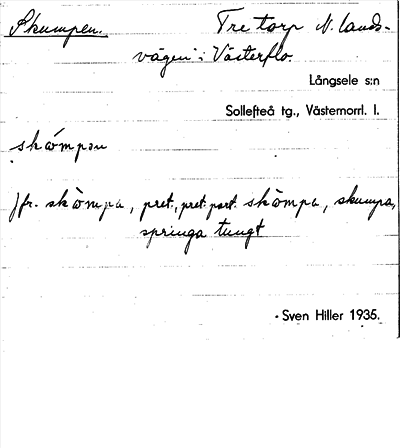 Skumpen. Tre torp N. lands-
vägen i Västerflo.
Långsele s:n
Sollefteå tg., Västernorrl. l.
skömpən
Jfr. skömpa, pret., pret. part. skömpa, skumpa,
springa tungt
Sven Hiller 1935.